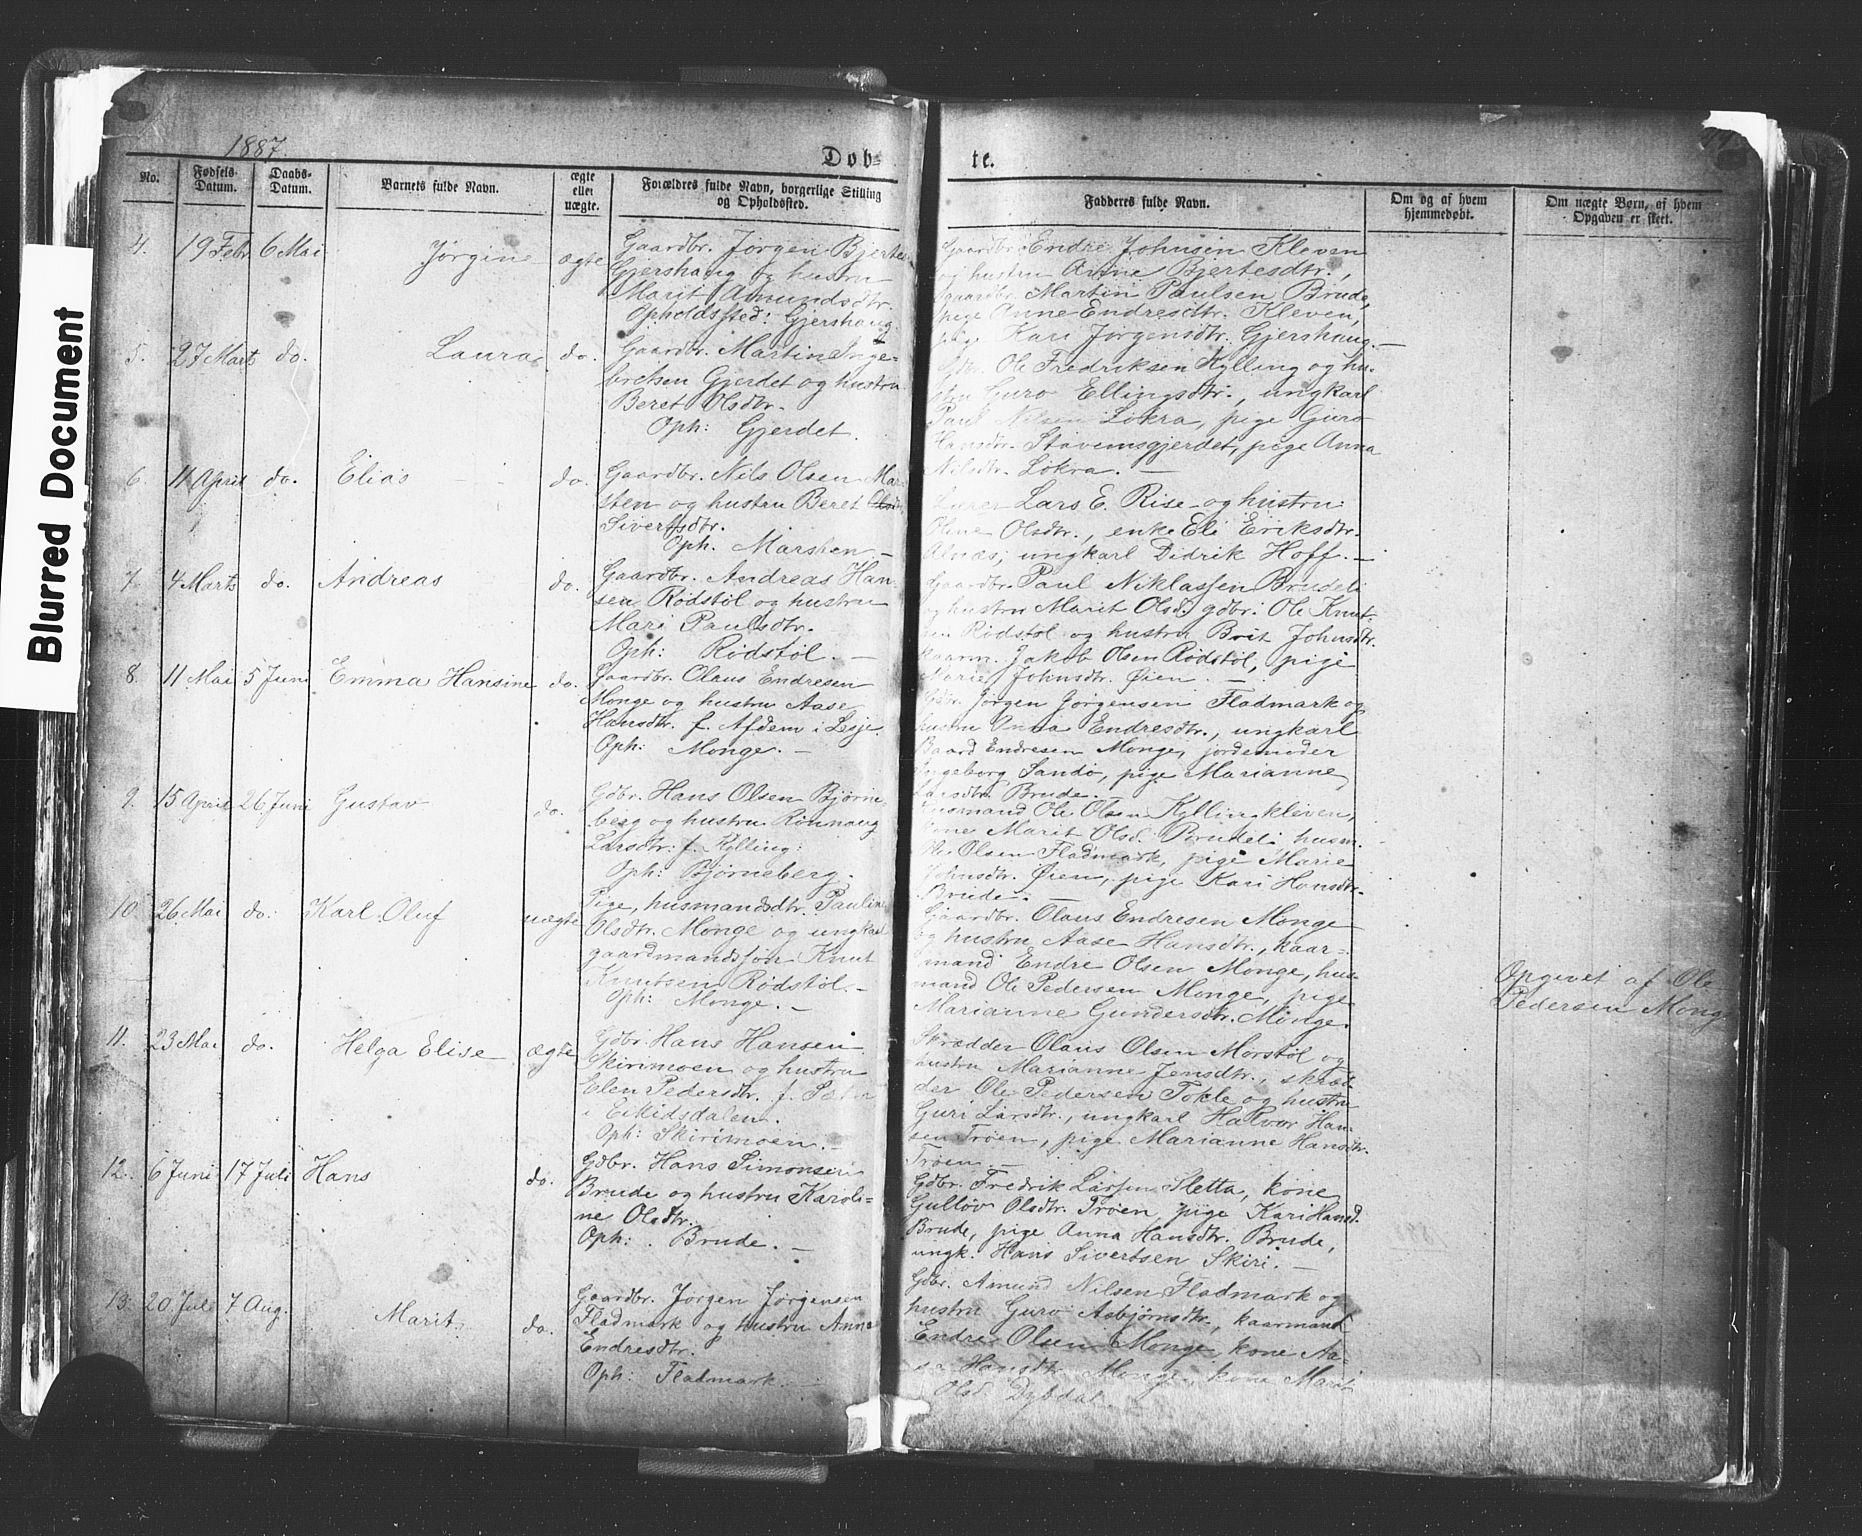 Blurred Document
1887.
Døb-
te.
No.
Fødsels-
Datum.
Daabs-
Datum.
Barnets fulde Navn.
ægte
eller
uægte.
Forældres fulde Navn, borgerlige Stilling
og Opholdssted.
Fadderes fulde Navn.
Om og af hvem
hjemmedøbt.
Om uægte Børn, af hvem
Opgaven er skeet.
4. 19 Febr 6 Mai Jørgine ægte
Gaardbr. Jørgen Bjertes
Gjershaug og hustru
Marit Amundsdtr.
Opholdssted: Gjershaug.
Gaardbr. Endre Johnsen Kleven
og hustru Anne Bjertesdtr.,
gaardbr. Martin Paulsen Brude,
pige Anne Endresdtr. Kleven,
pige Kari Jørgensdtr. Gjershaug. —
5. 27 Marts do. Laura do.
Gaardbr. Martin Inge-
bretsen Gjerdet og hustru
Beret Olsdtr.
Oph: Gjerdet.
Gdbr. Ole Fredriksen Kylling og hu-
stru Guro Ellingsdtr., ungkarl
Paul Nilsen Løkra, pige Guro
Hansdtr. Stavemsgjerdet, pige Anna
Nilsdtr. Løkra. —
6. 11 April do. Elias do.
Gaardbr. Nils Olsen Mar-
sten og hustru Beret Olsdtr.
Sivertsdtr.
Oph. Marsten. —
Lærer Lars E. Rise og hustru
Oline Olsdtr., enke Eli Eriksdtr.
Alnæs, ungkarl Didrik Hoff. —
7. 4 Marts do. Andreas do.
Gaardbr. Andreas Han-
sen Rødstøl og hustru
Mari Paulsdtr.
Oph: Rødstøl. —
Gaardbr. Paul Niklassen Brudeli
og hustru Marit Olsd. gdbr. Ole Knut-
sen Rødstøl og hustru Brit Johnsdtr.
kaarm. Jakob Olsen Rødstøl, pige
Marie Johnsdtr. Øien. —
8. 11 Mai 5 Juni Emma Hansine do.
Gaardbr. Olaus Endresen
Monge og hustru Aase
Hansdtr. f. Afdem i Lesje.
Oph: Monge. —
Gdbr. Jørgen Jørgensen Fladmark og
hustru Anna Endresdtr., ungkarl
Baard Endresen Monge, jordemoder
Ingeborg Sandø, pige Marianne
Larsdtr. Brude. —
9. 15 April 26 Juni Gustav do.
Gdbr. Hans Olsen Bjørne-
berg og hustru Rønnaug
Larsdtr. f. Kylling.
Oph: Bjørneberg.
Husmand Ole Olsen Kyllingkleven,
kone Marit Olsd. Brudeli, husm.
Ole Olsen Fladmark, pige Marie
Johnsdtr. Øien, pige Kari Hansdtr.
Brude. —
10. 26 Mai do. Karl Oluf uægte
Pige, husmandsdtr. Pauline
Olsdtr. Monge og ungkarl
gaardmandssøn Knut
Knutsen Rødstøl. —
Oph: Monge. —
Gaardbr. Olaus Endresen Monge
og hustru Aase Hansdtr., kaar-
mand Endre Olsen Monge, hus-
mand Ole Pedersen Monge, pige
Marianne Gundersdtr. Monge.
Opgivet af Ole
Pedersen Monge
11. 23 Mai do. Helga Elise ægte
Gdbr. Hans Hansen
Skirimoen og hustru
Elen Pedersdtr. f. Sæter
i Eikisdalen.
Oph: Skirimoen. —
Skrædder Olaus Olsen Morstøl og
hustru Marianne Jensdtr., skræd-
der Ole Pedersen Tokle og hustru
Guri Larsdtr., ungkarl Halvor Han-
sen Trøen, pige Marianne Hansdtr.
Trøen. —
12. 6 Juni 17 Juli Hans do.
Gdbr. Hans Simonsen
Brude og hustru Karoli-
ne Olsdtr.
Oph: Brude. —
Gdbr. Fredrik Larsen Sletta, kone
Gulløv Olsdtr. Trøen, pige Kari Hansd.
Brude, pige Anna Hansdtr. Brude,
ungk. Hans Sivertsen Skiri. —
13. 20 Juli 7 Aug. Marit do.
Gaardbr. Jørgen Jørgensen
Fladmark og hustru Anne
Endresdtr.
Oph: Fladmark. —
Gdbr. Amund Nilsen Fladmark og
hustru Guro Asbjørnsdtr., kaarmand
Endre Olsen Monge, kone Aa-
sa Hansdtr. Monge, kone Marit
Olsd. Dybdal.